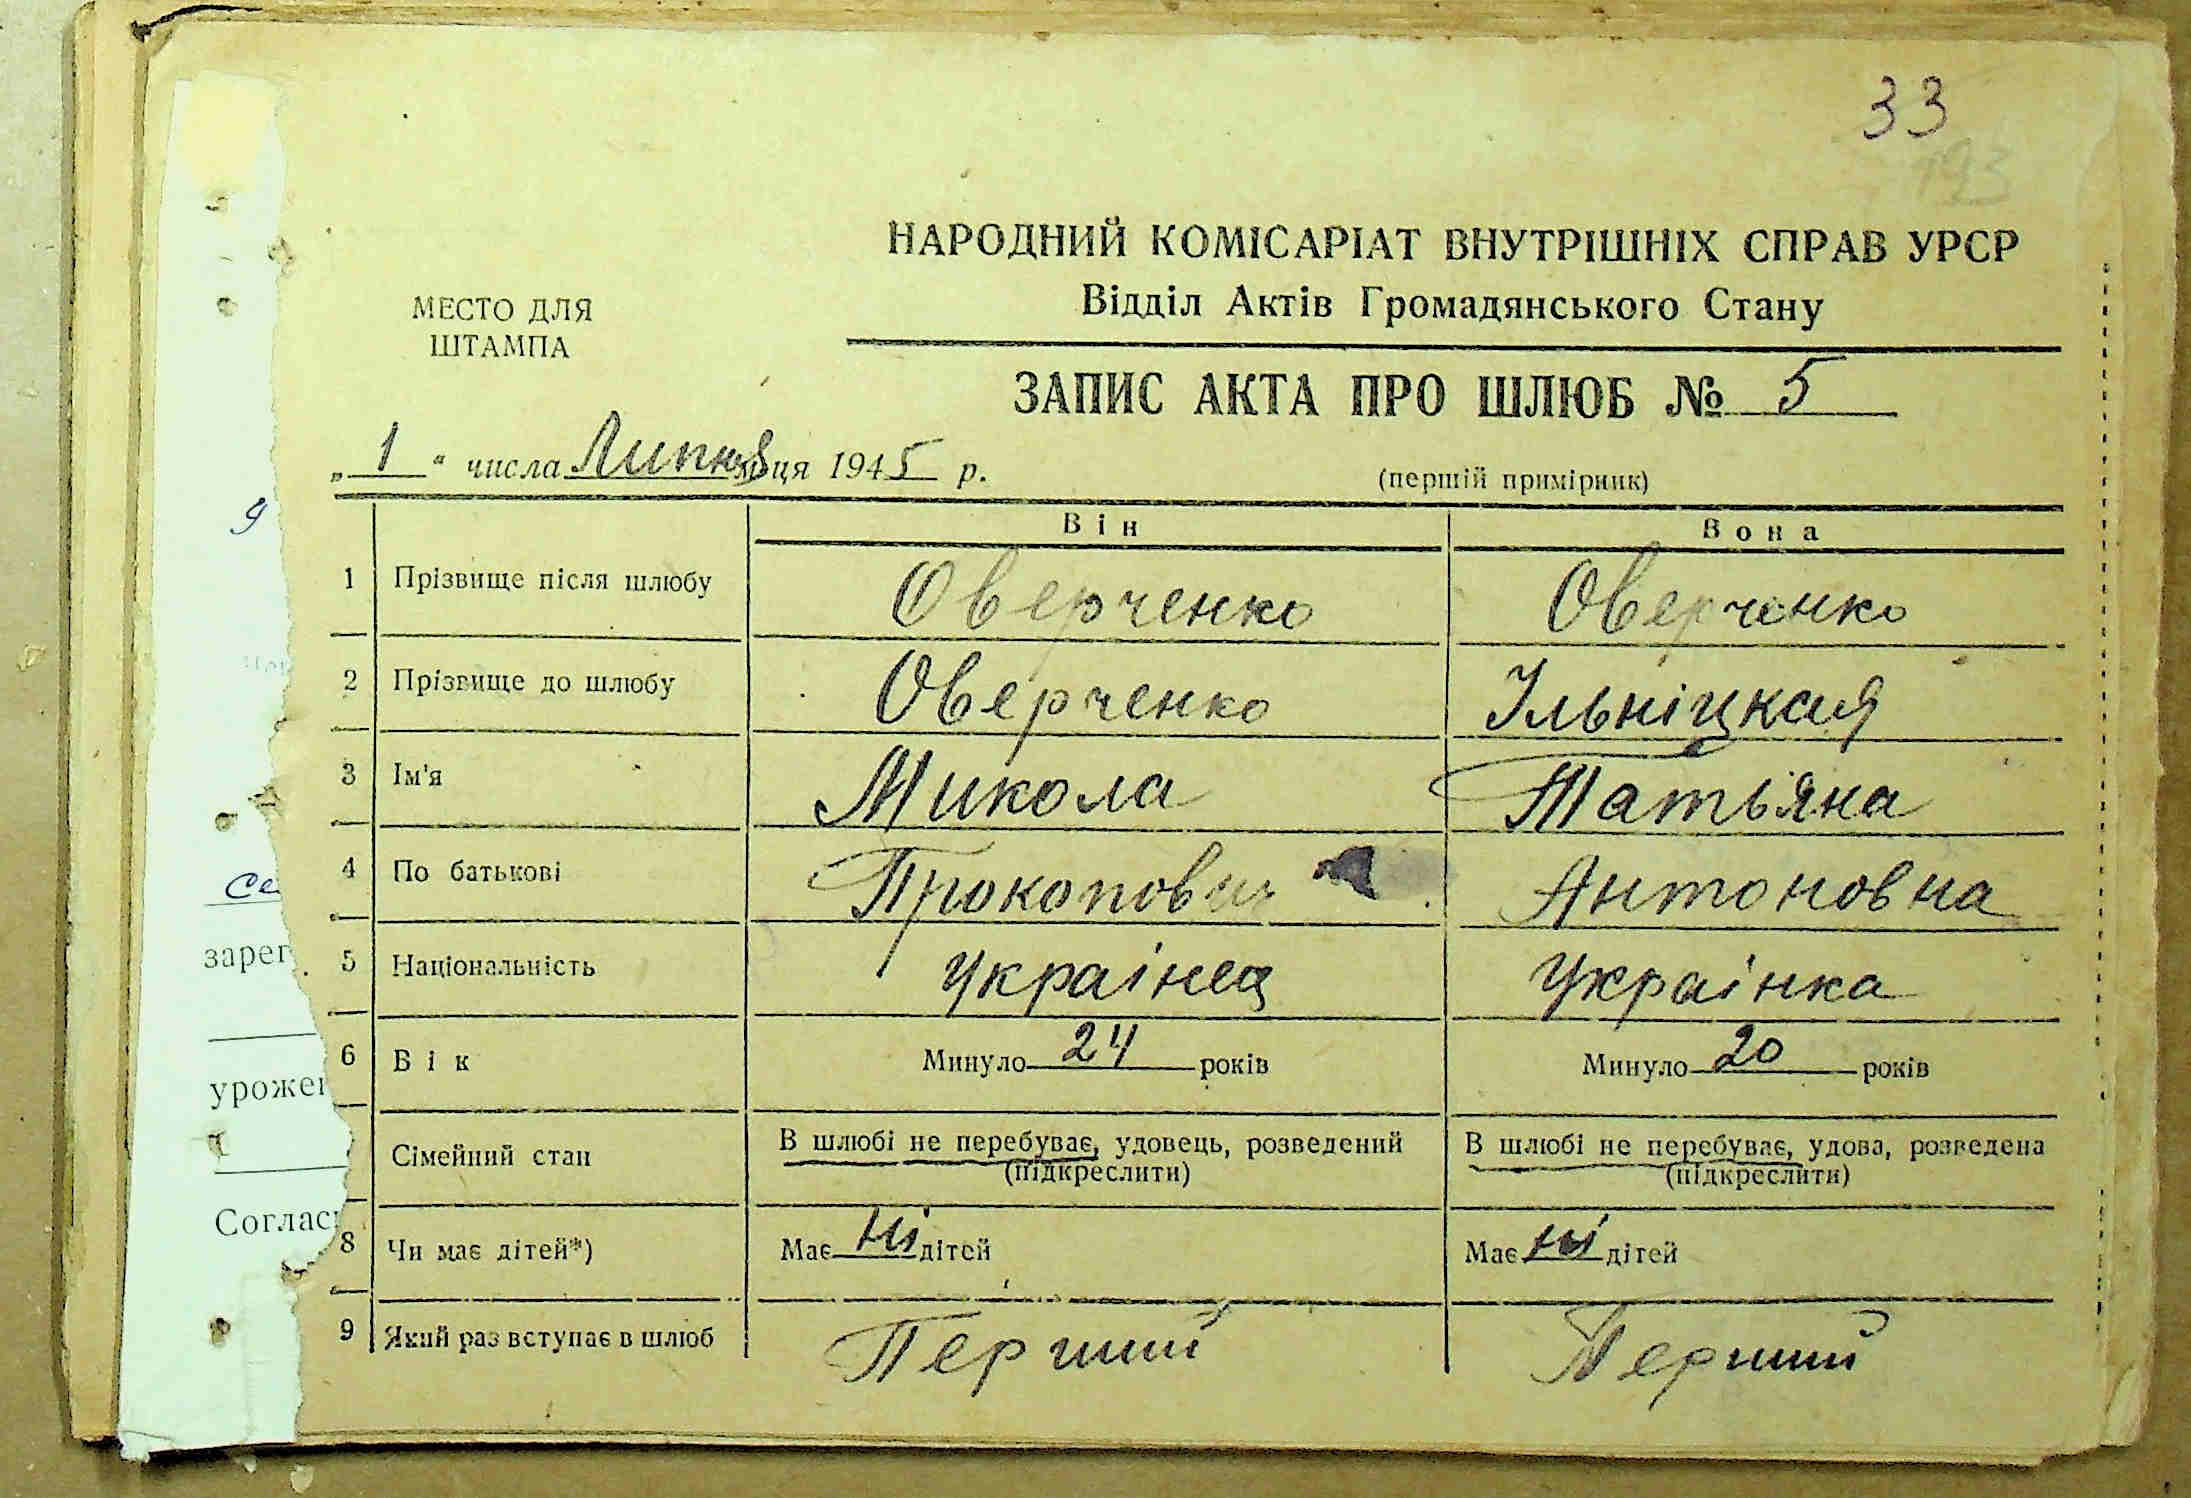 33
193
НАРОДНИЙ КОМІСАРІАТ ВНУТРІШНІХ СПРАВ УРСР
Відділ Актів Громадянського Стану
МЕСТО ДЛЯ
ШТАМПА
ЗАПИС АКТА ПРО ШЛЮБ № 5
„ 1 “ числа Липня ця 1945 р.
(першій примірник)
Він Вона
1 Прізвище після шлюбу Оверченко Оверченко
2 Прізвище до шлюбу Оверченко Ільніцкая
3 Ім'я Микола Татьяна
4 По батькові Прокопович Антоновна
5 Національність Українец Українка
6 Вік Минуло 24 років Минуло 20 років
Сімейний стан В шлюбі не перебуває, удовець, розведений В шлюбі не перебуває, удова, розведена
(підкреслити) (підкреслити)
8 Чи має дітей*) Має ні дітей Має ні дітей
9 Який раз вступає в шлюб Перший Перший
9
се
зарег
уроже
Соглас